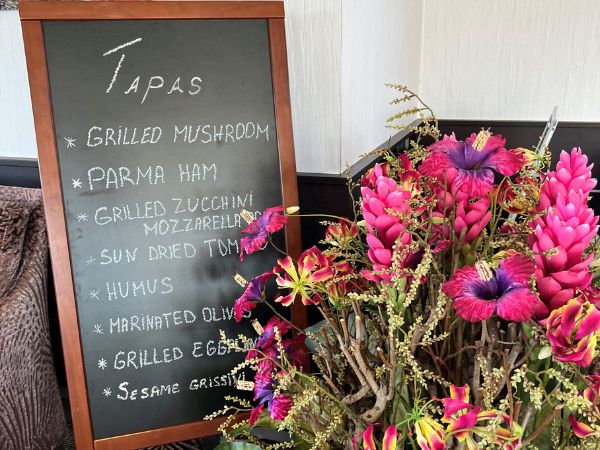 TAPAS
* GRILLED MUSHROOM
* PARMA HAM
* GRILLED ZUCCHINI
MOZZARELLA
* SUN DRIED
* HUMUS
* MARINATED
* GRILLED
* SESAME GRISSINI